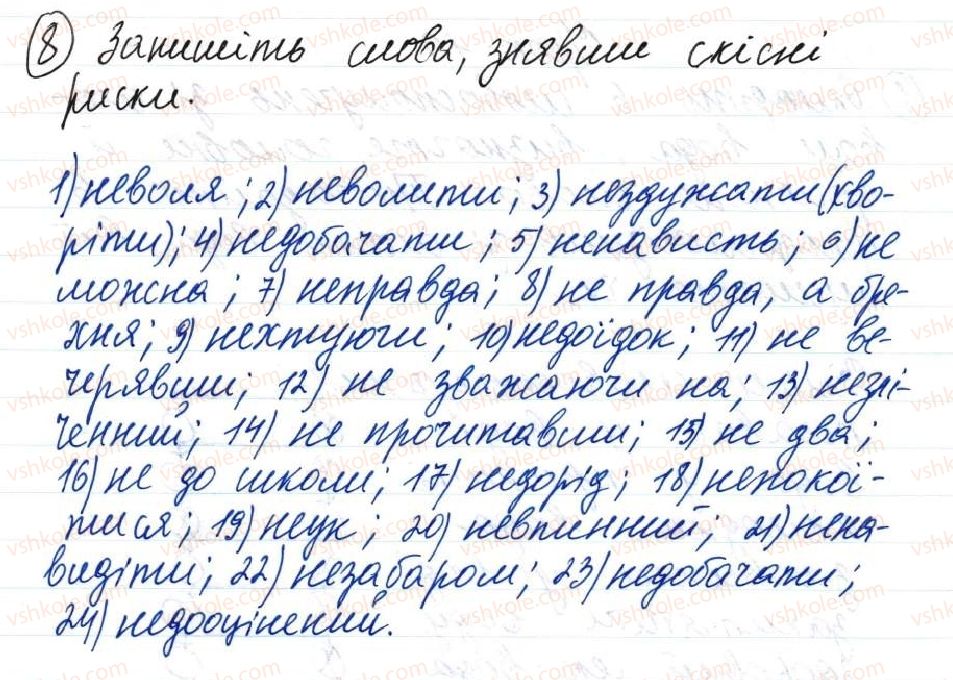 8 Запишіть слова, знявши скісні
риски.
1) неволя; 2) неволити; 3) нездужати (хво-
ріти); 4) недобачати; 5) ненависть; 6) не
можна; 7) неправда; 8) не правда, а бре-
хня; 9) нехтуючи; 10) недоїдок; 11) не ве-
черявши; 12) не зважаючи на; 13) незлі-
ченний; 14) не прочитавши; 15) не два;
16) не до школи; 17) недорід; 18) непокої-
тися; 19) неук; 20) невпинний; 21) нена-
видіти; 22) незабаром; 23) недобачати;
24) недооцінений.